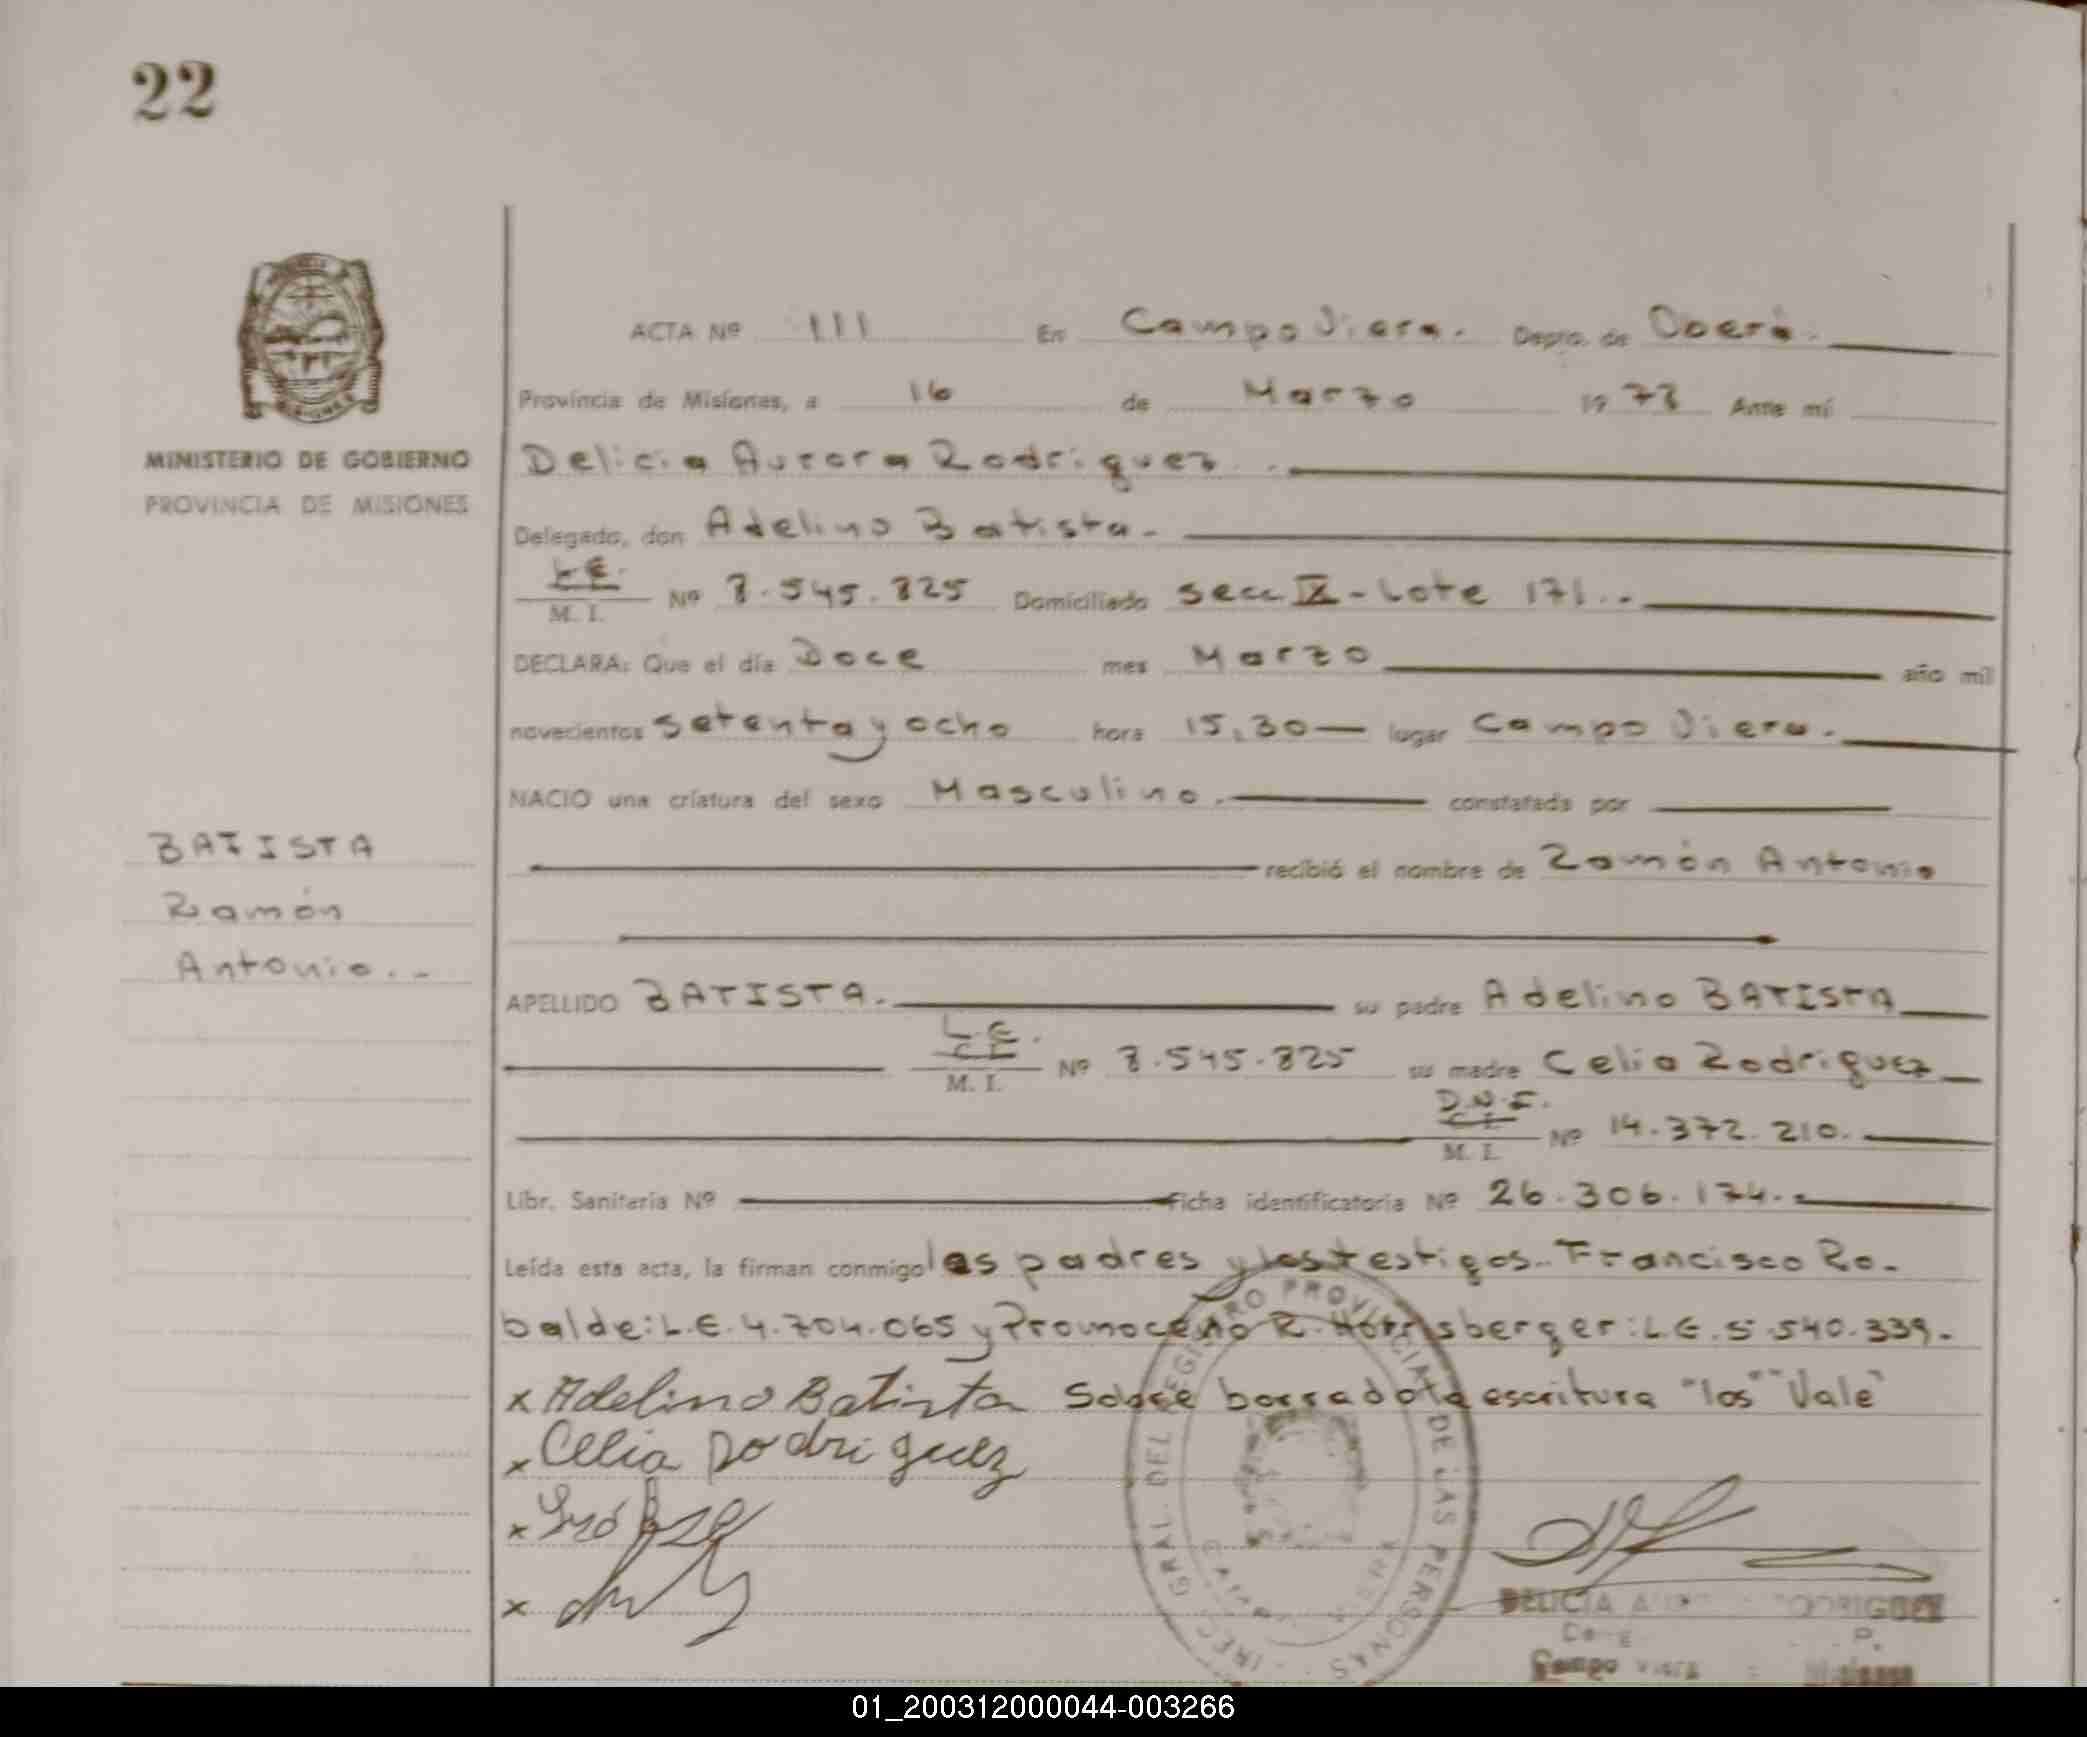 22
ACTA Nº 111 En Campo Viera. Depto. de Oberá.
Provincia de Misiones, a 16 de Marzo 1978 Ante mí
MINISTERIO DE GOBIERNO
PROVINCIA DE MISIONES
Delicia Aurora Rodriguez.
Delegado, don Adelino Batista.
L.E.
M. I. Nº 8.545.825 Domiciliado Secc. IX - Lote 171..
DECLARA: Que el día Doce mes Marzo año mil
novecientos setenta y ocho hora 15,30 lugar Campo Viera.
NACIO una criatura del sexo Masculino. constatada por
BATISTA
Ramón
Antonio..
recibió el nombre de Ramón Antonio
APELLIDO BATISTA. su padre Adelino BATISTA
L.E.
M. I. Nº 8.545.825 su madre Celia Rodriguez
D.N.I.
M. I. Nº 14.372.210.
Libr. Sanitaria Nº Ficha identificatoria Nº 26.306.174.
Leída esta acta, la firman conmigo los padres y los testigos.. Francisco Ro-
balde: L.E. 4.704.065 y R. : L.E. 5.540.339.
x Adelino Batista Sobre borrado la escritura "los" "Vale"
x Celia Rodriguez
x
x
DIREC. GRAL. DEL REGISTRO PROVINCIAL DE LAS PERSONAS
DELICIA RODRIGUEZ
Campo Viera
01_200312000044-003266